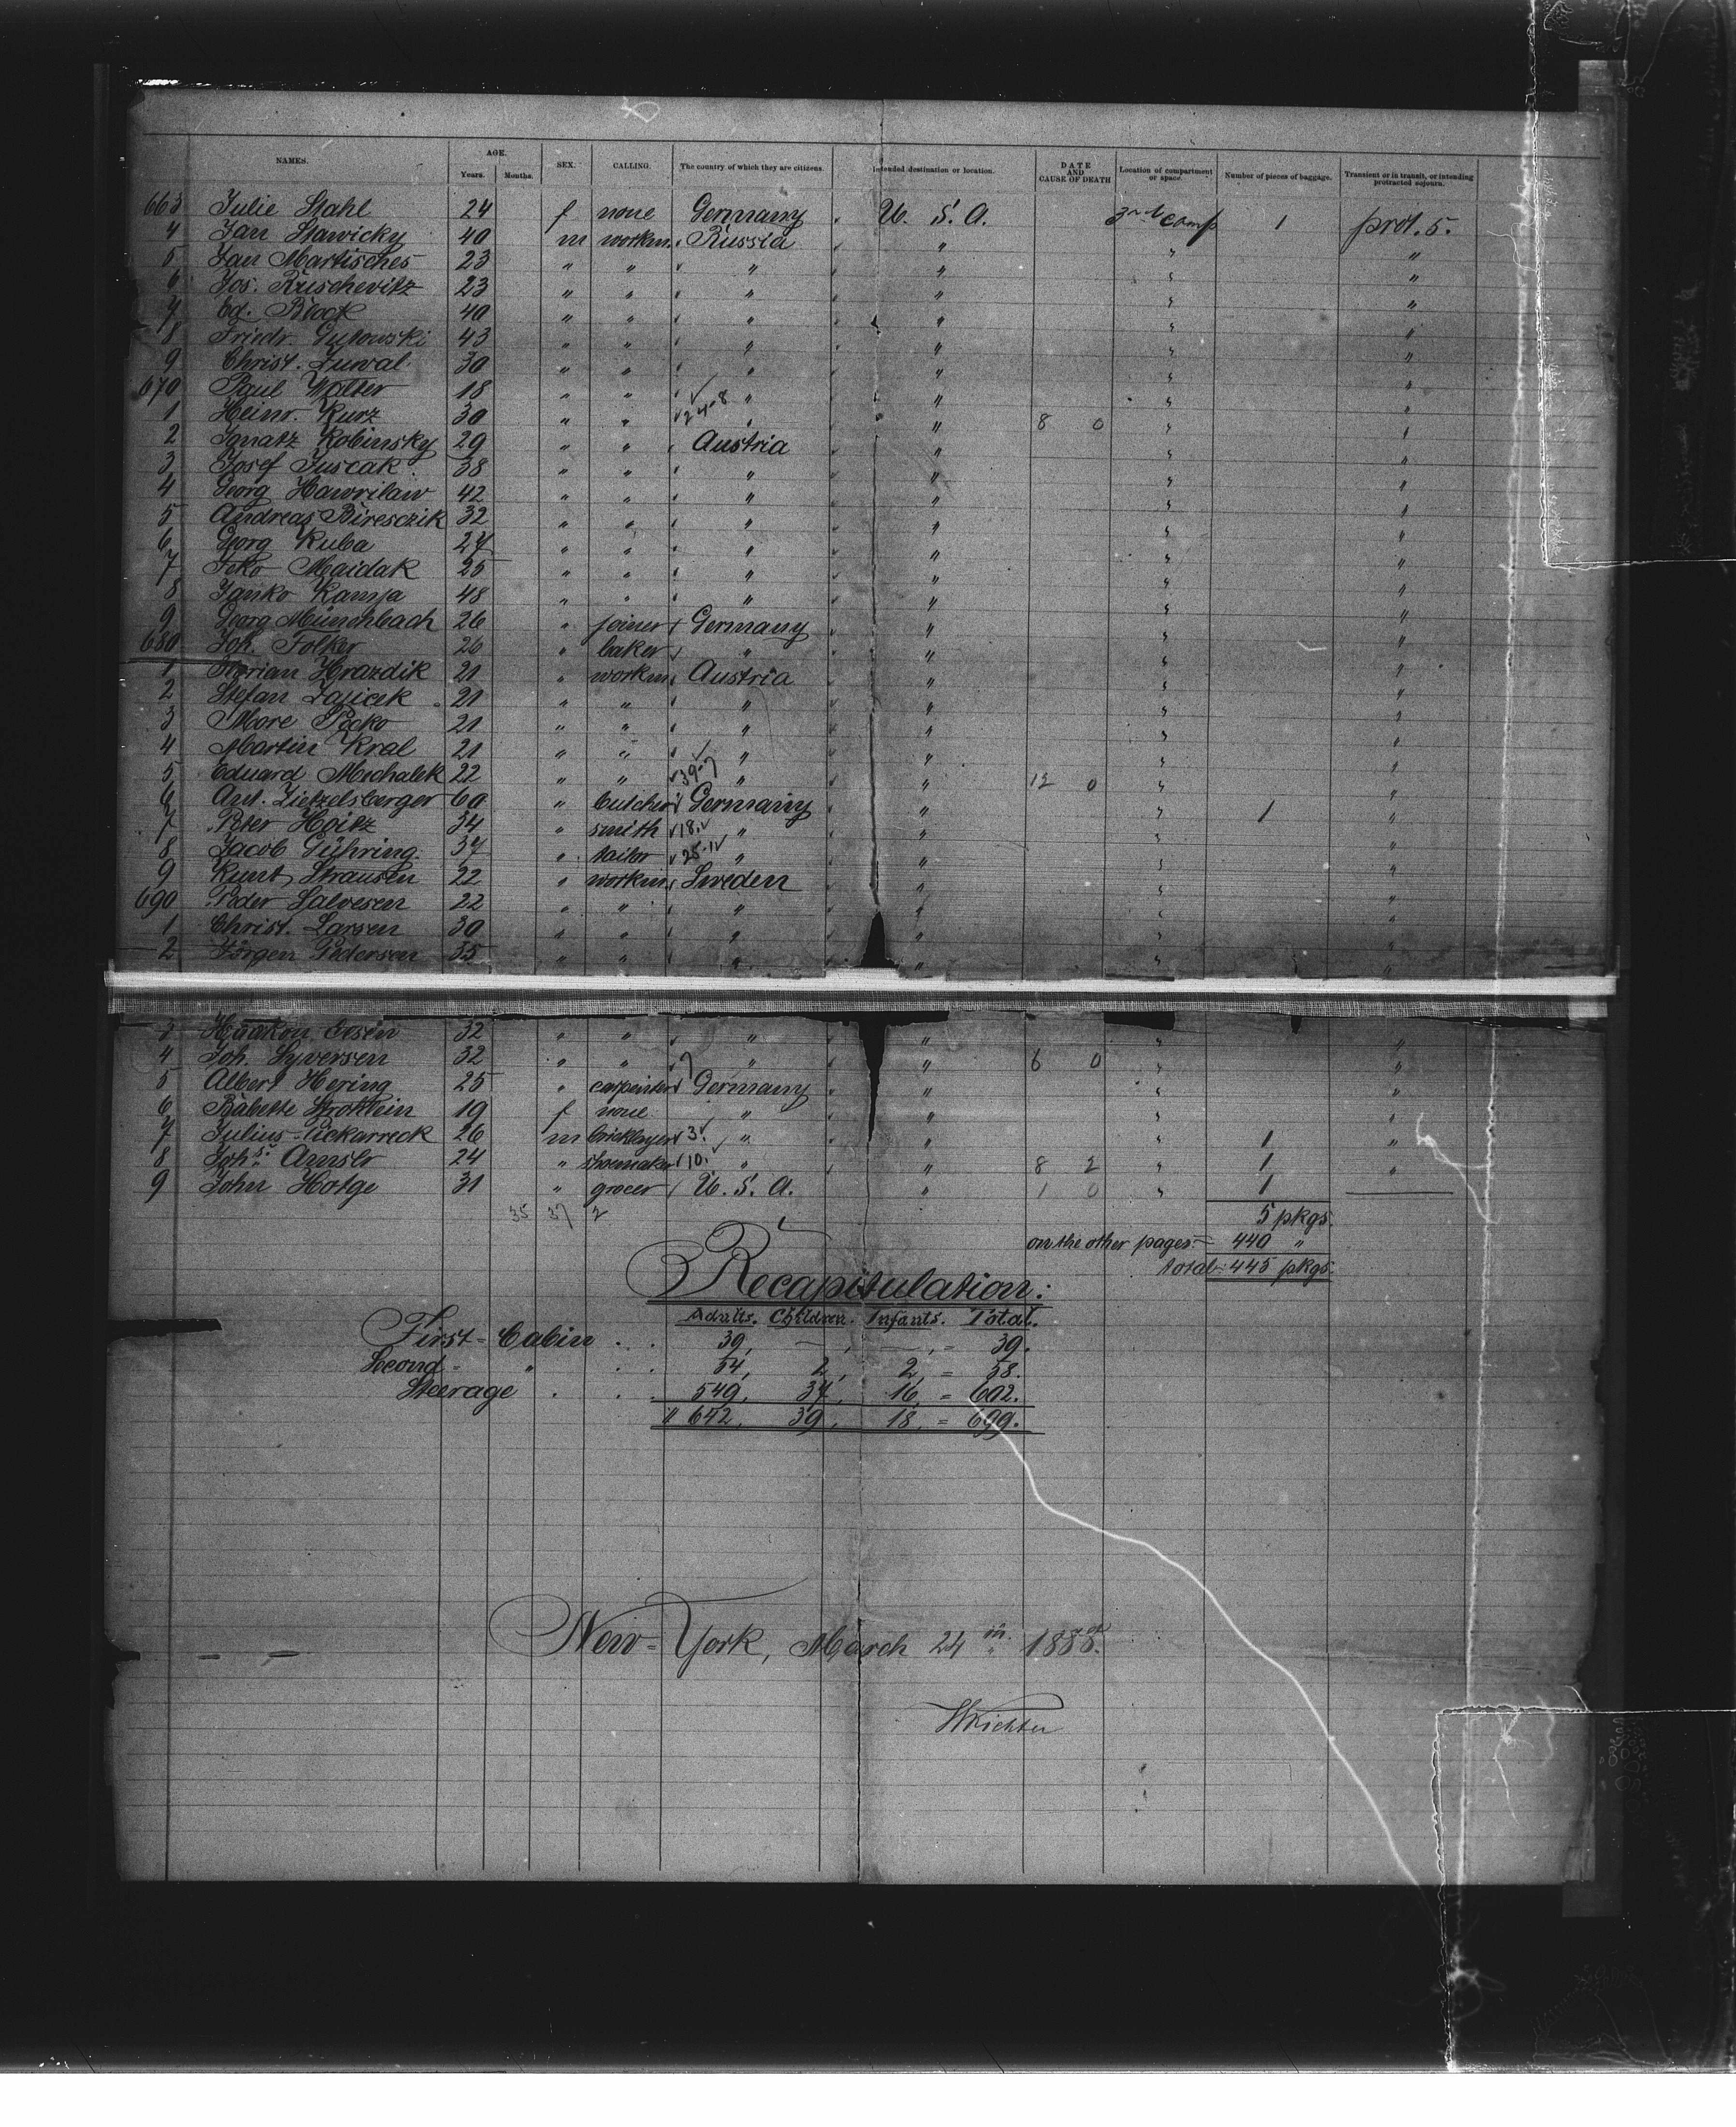 NAMES. AGE. Years. Months. SEX. CALLING. The country of which they are citizens. Intended destination or location. DATE AND CAUSE OF DEATH Location of compartment or space. Number of pieces of baggage. Transient or in transit, or intending protracted sojourn.
663 Julie Stahl 24 f none Germany U. S. A. 3rd Comp 1 prot. s.
4 Jan Stawicky 40 m workm. Russia " " "
5 Jan Martisches 23 " " " " " "
6 Jos. Ruschevitz 23 " " " " " "
7 Ed. Block 40 " " " " " "
8 Friedr. Gutowski 43 " " " " " "
9 Christ. Zuwal 30 " " " " " "
670 Paul Walter 18 " " " " " "
1 Heinr. Kurz 30 " " 24-8 " " 8 0 " "
2 Ignatz Robinsky 29 " " Austria " " "
3 Josef Juscak 38 " " " " " "
4 Georg Hawrilaw 42 " " " " " "
5 Andreas Biresczik 32 " " " " " "
6 Georg Kuba 27 " " " " " "
7 Feko Maidak 25 " " " " " "
8 Janko Kamja 48 " " " " " "
9 Georg Münchbach 26 " joiner Germany " " "
680 Joh. Folker 26 " baker " " " "
1 Florian Hrazdik 21 " workm. Austria " " "
2 Stefan Zajicek 21 " " " " " "
3 More Pecko 21 " " " " " "
4 Martin Kral 21 " " " " " "
5 Eduard Michalek 22 " " 39-7 " " 12 0 " "
6 Ant. Zietzelsberger 60 " butcher Germany " " 1 "
7 Peter Hoitz 34 " smith 18. " " "
8 Jacob Gühring 37 " tailor 25-1 " " " "
9 Kunt Strausen 22 " workm. Sweden " " "
690 Peder Salvesen 22 " " " " " "
1 Christ. Larsen 30 " " " " " "
2 Jörgen Pedersen 35 " " " " " "
3 Haakon 32 " " " " " "
4 Joh. Syversen 32 " " 7 " " 6 0 " "
5 Albert Hering 25 " carpenter Germany " " "
6 Babette Strohlein 19 f none " " " "
7 Julius Pickarreck 26 m bricklayer 3. " " " 1 "
8 Johs. Amsler 24 " shoemaker 10. " " 8 2 " 1 "
9 John Hotge 31 " grocer U. S. A. " 1 0 " 1
35 37 2 5 pkgs.
on the other pages = 440 "
total = 445 pkgs.
Recapitulation:
Adults. Children. Infants. Total.
First-Cabin . . 39, — , — , = 39.
Second " . . 54, 2, 2, = 58.
Steerage . . . 549, 37, 16, = 602.
" 642, 39, 18, = 699.
New-York, March 24th 1888.
Richter